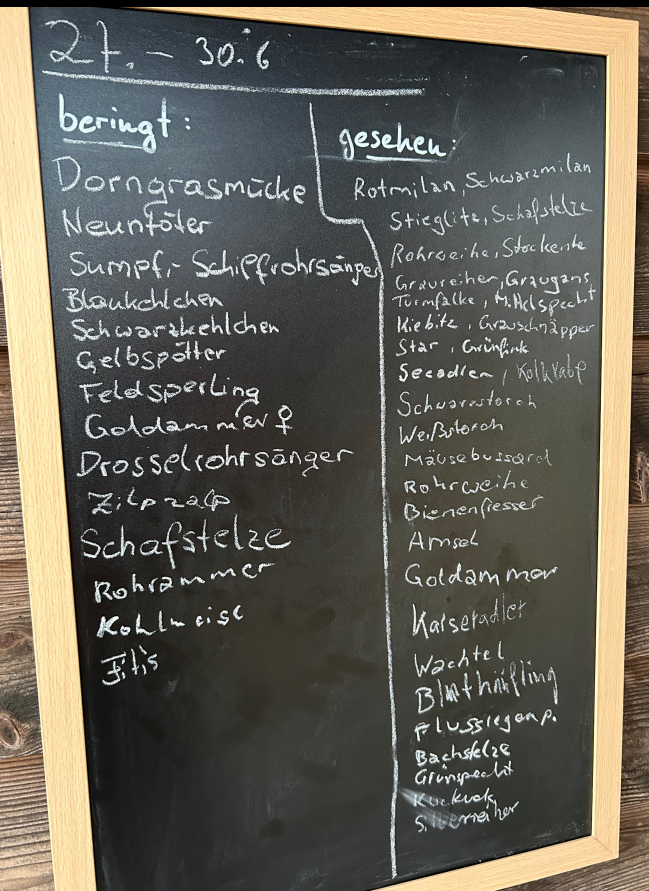 27. – 30.6
beringt:
Dorngrasmücke
Neuntöter
Sumpf,- Schilffrohrsänger
Blaukehlchen
Schwarzkehlchen
Gelbspötter
Feldsperling
Goldammer ♀
Drosselrohrsänger
Zilpzalp
Schafstelze
Rohrammer
Kohlmeise
Fitis
gesehen:
Rotmilan, Schwarzmilan
Stieglitz, Schafstelze
Rohrweihe, Stockente
Graureiher, Graugans
Turmfalke, Mittelspecht
Kiebitz, Grauschnäpper
Star, Grünfink
Seeadler, Kolkrabe
Schwarzstorch
Weißstorch
Mäusebussard
Rohrweihe
Bienenfresser
Amsel
Goldammer
Kaiseradler
Wachtel
Bluthänfling
Flussregenp.
Bachstelze
Grünspecht
Kuckuck
Silberreiher